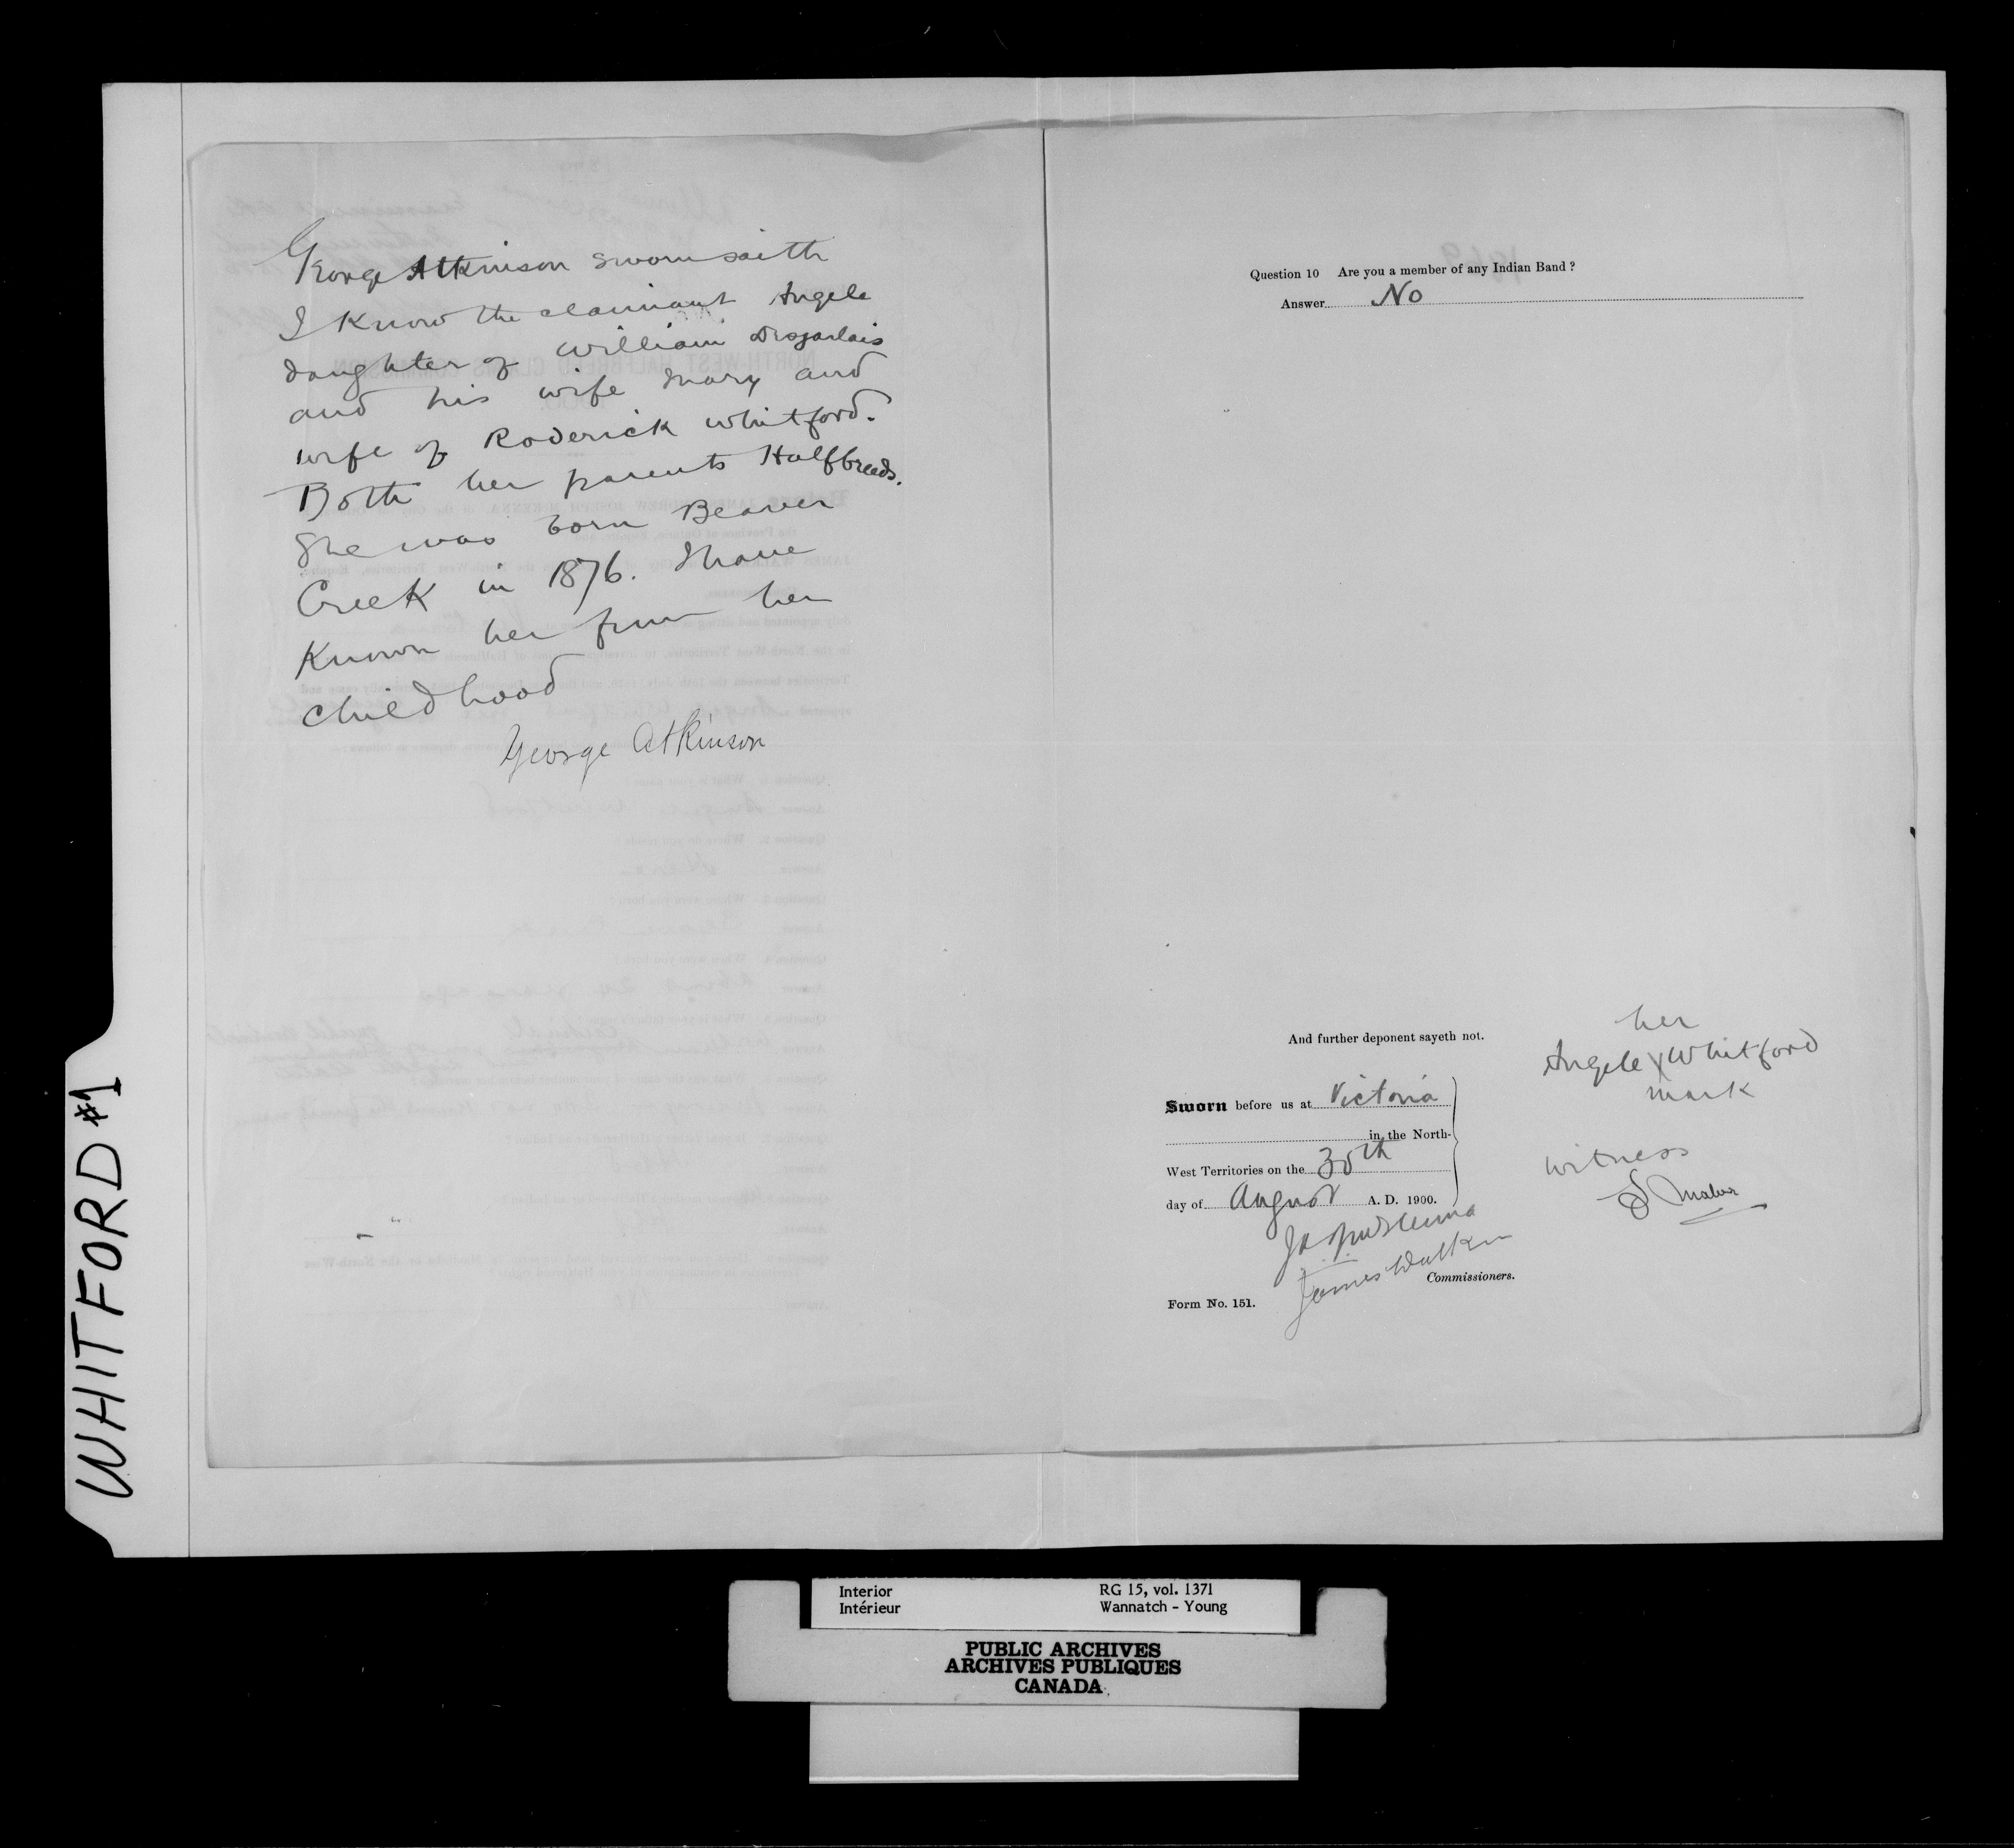 George Atkinson sworn saith
I know the claimant Angele
daughter of William Desjarlais
and his wife Mary and
wife of Roderick Whitford.
Both her parents Halfbreeds.
She was born Beaver
Creek in 1876. I have
known her from her
childhood
George Atkinson
Question 10 Are you a member of any Indian Band ?
Answer No
And further deponent sayeth not.
her
Angele X Whitford
mark
Sworn before us at Victoria
in the North-
West Territories on the 30th
day of August A. D. 1900.
witness
James Walker
Commissioners.
Form No. 151.
WHITFORD #1
Interior RG 15, vol. 1371
Intérieur Wannatch - Young
PUBLIC ARCHIVES
ARCHIVES PUBLIQUES
CANADA